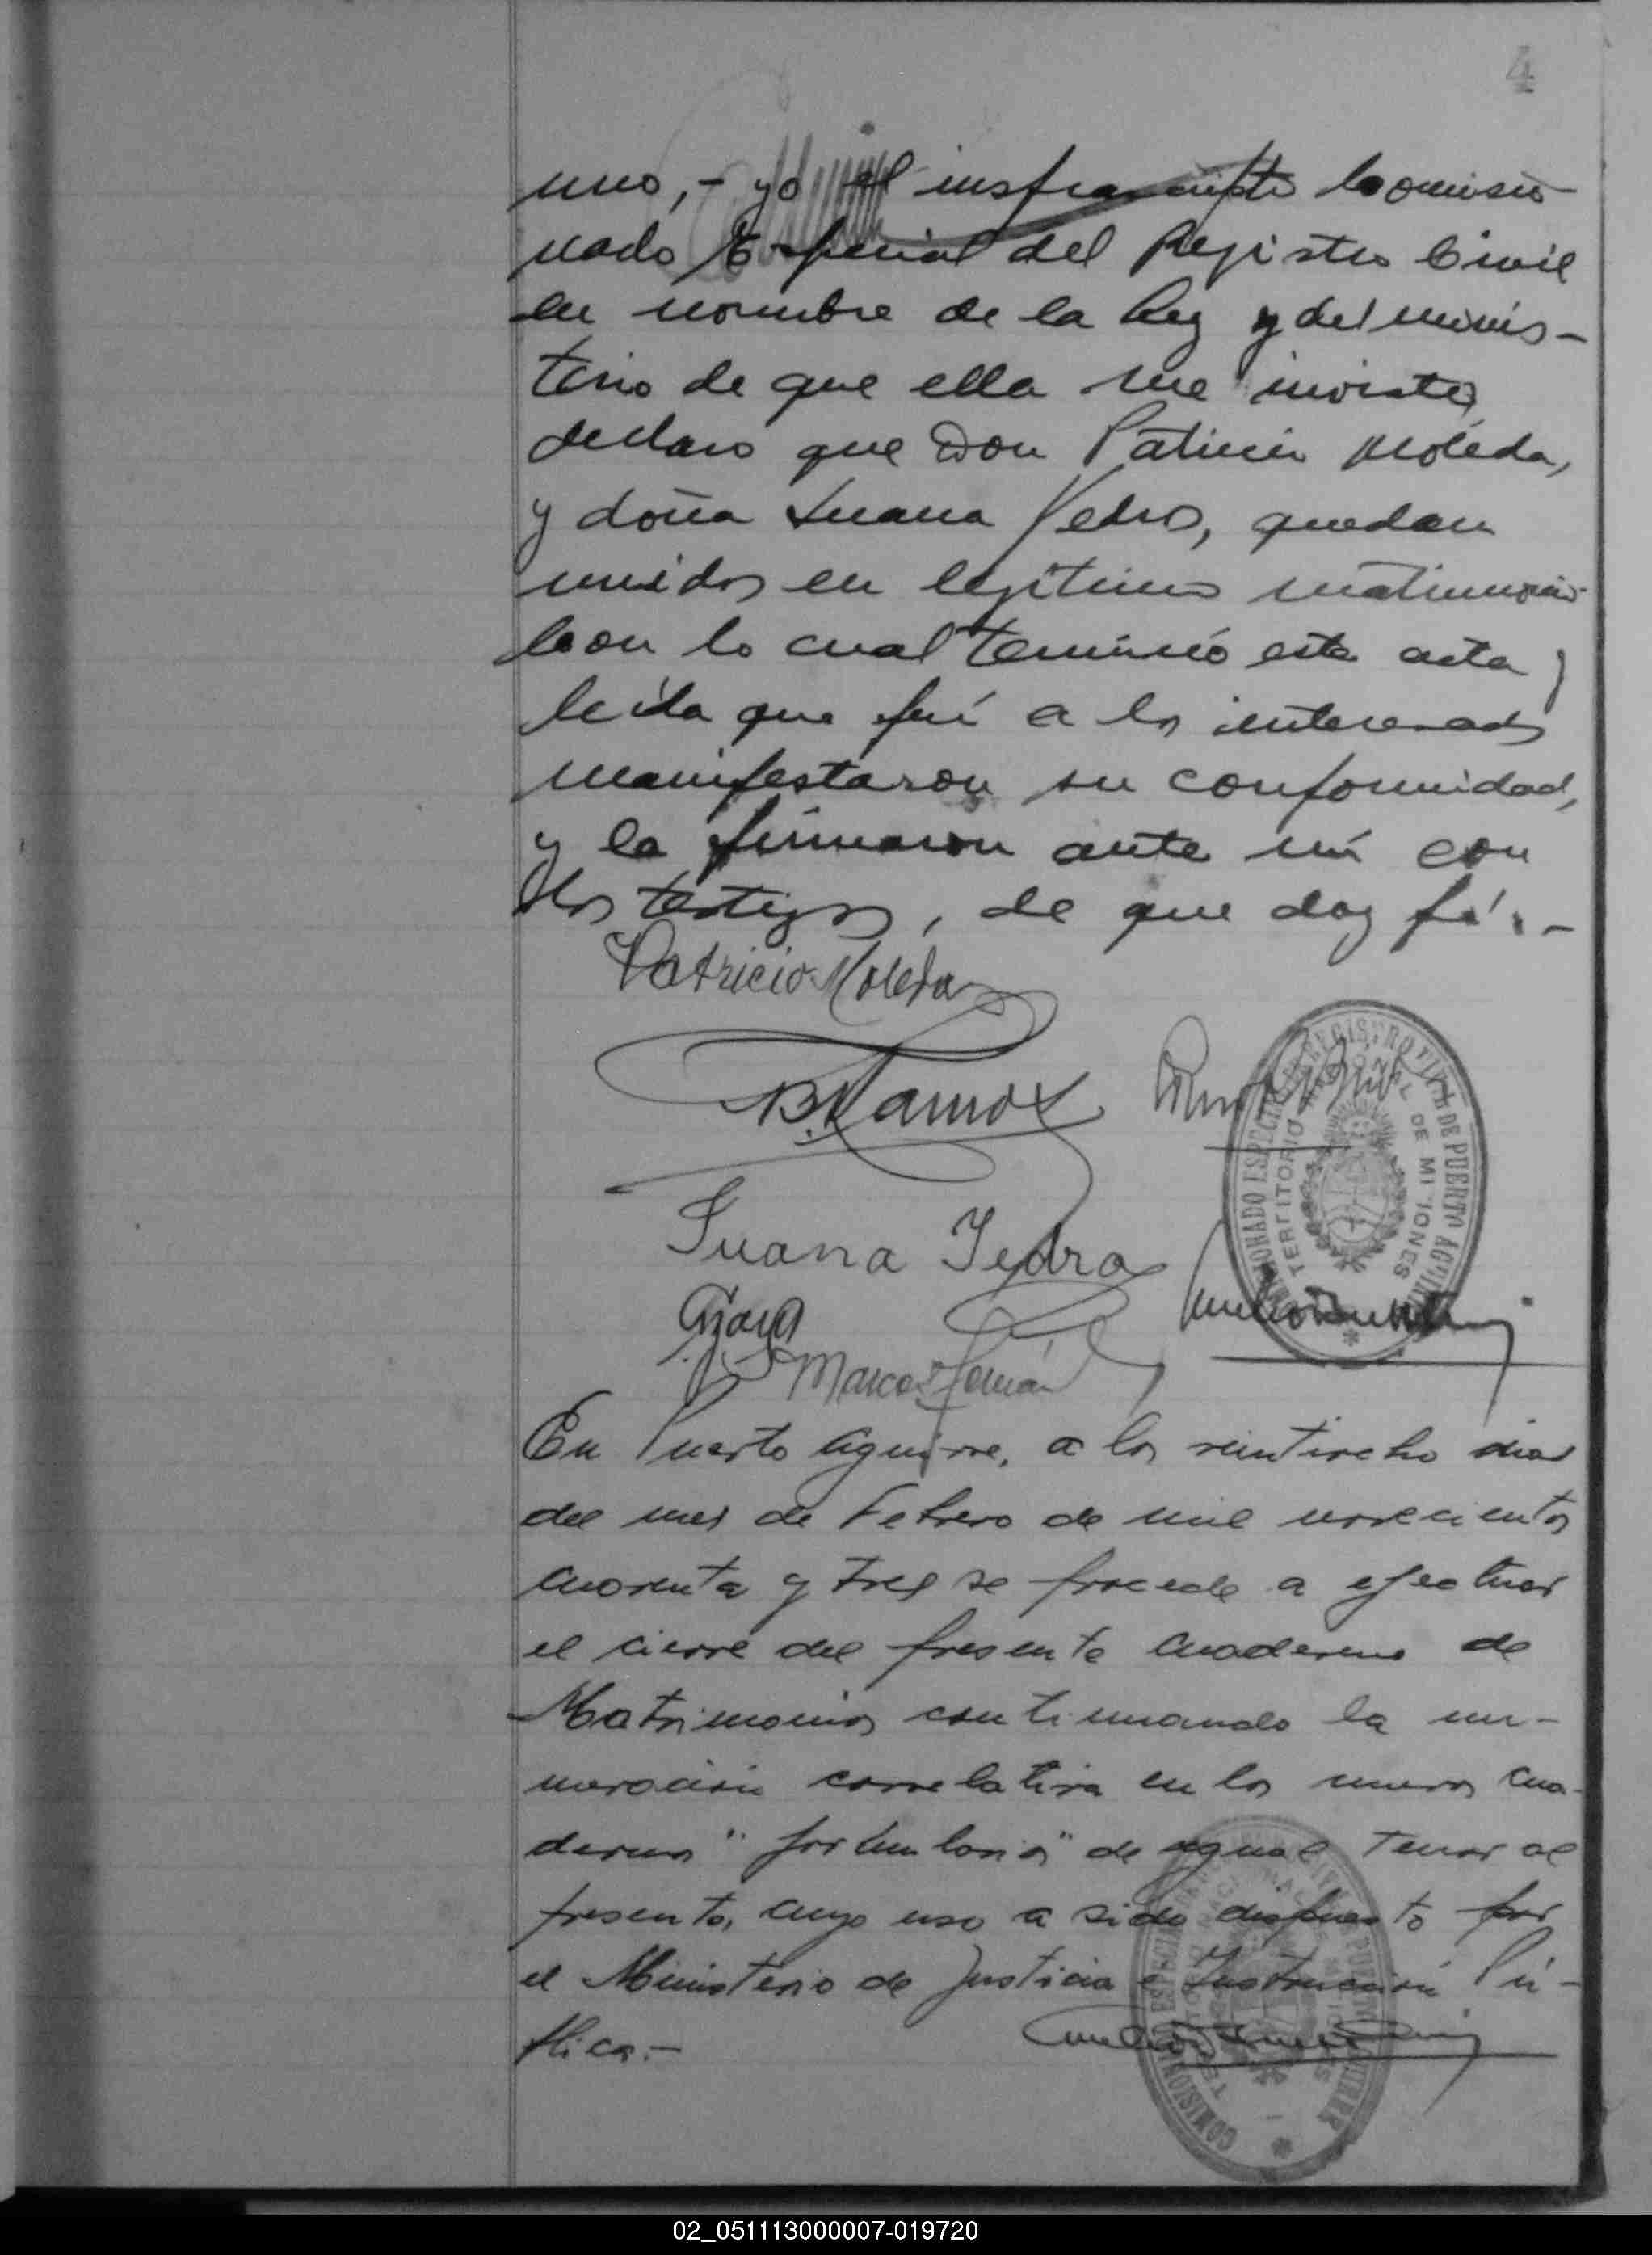 4
uno,- yo el insfrascripto Comisio-
nado Especial del Registro Civil
en nombre de la Ley y del minis-
terio de que ella me inviste,
declaro que Don Patricio Moleda,
y doña Juana Yedro, quedan
unidos en legitimo matrimonio-
Con lo cual terminó esta acta y
leída que fué a los interesados
manifestaron su conformidad,
y la firmaron ante mí con
los testigos, de que doy fé.-
Patricio Moleda
B. Ramos
Juana Yedro
Marcos Román
COMISIONADO ESPECIAL REGISTRO CIVIL DE PUERTO AGUIRRE
TERRITORIO NACIONAL DE MISIONES
En Puerto Aguirre, a los veintiocho dias
del mes de Febrero de mil novecientos
cuarenta y tres se procede a efectuar
el cierre del presente cuaderno de
Matrimonios continuando la nu-
meración correlativa en los nuevos cua-
dernos "formularios" de igual tenor al
presente, cuyo uso a sido dispuesto por
el Ministerio de Justicia e Instrucción Pú-
blica.-
COMISIONADO ESPECIAL REGISTRO CIVIL DE PUERTO AGUIRRE
02_051113000007-019720